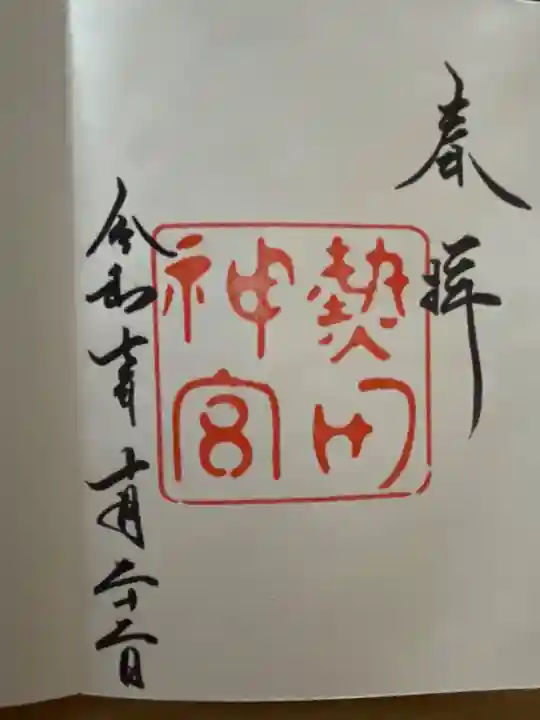 奉拝
熱田
神宮
令和七年十月二十二日